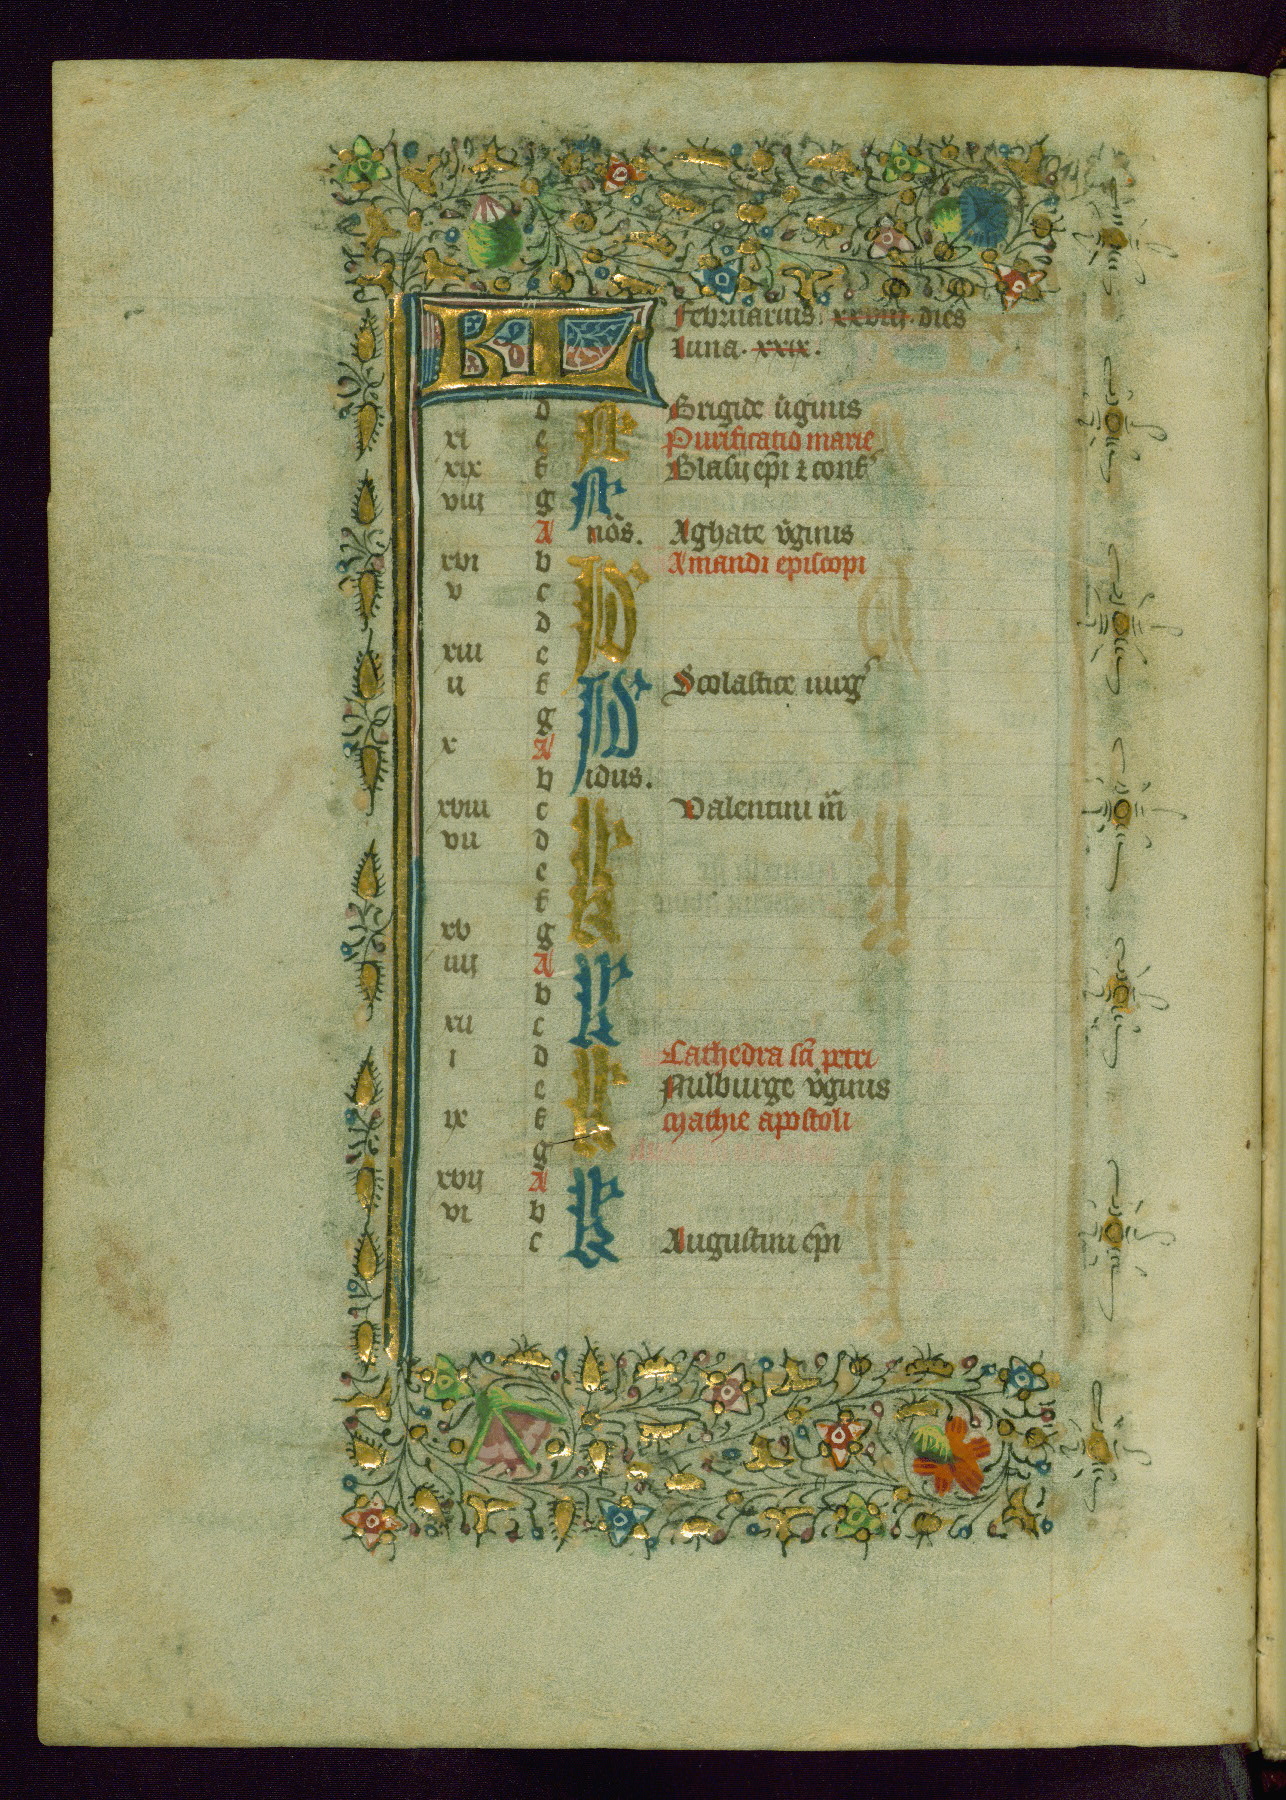 KL Februarius. xxviij. dies
Luna. xxix.
d N Brigide v̄ginis
xi e Purificatio marie
xix f Blasij ep̄i ⁊ conf̄
viij g N
A nōs. Aghate v̄ginis
xvi b Amandi episcopi
v c
d
xiii e
ii f Scolastice uirḡ
g
x A
b idus.
xviii c Valentini m̄
vii d
e
f
xv g
iiij A
b
xii c
i d Cathedra sc̄i petri
e v̄ginis
ix f Mathie apostoli
g
xvij A
vi b
c Augustini ep̄i